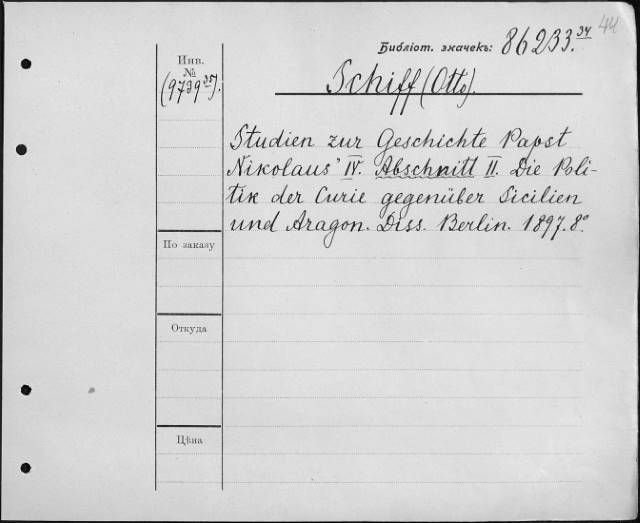 44
Библіот. значекъ: 86233.³⁴
Инв.
№
(9739³⁵).
Schiff (Otto).
Studien zur Geschichte Papst
Nikolaus' IV. Abschnitt II. Die Poli-
tik der Curie gegenüber Sicilien
und Aragon. Diss. Berlin. 1897. 8°
По заказу
Откуда
Цѣна